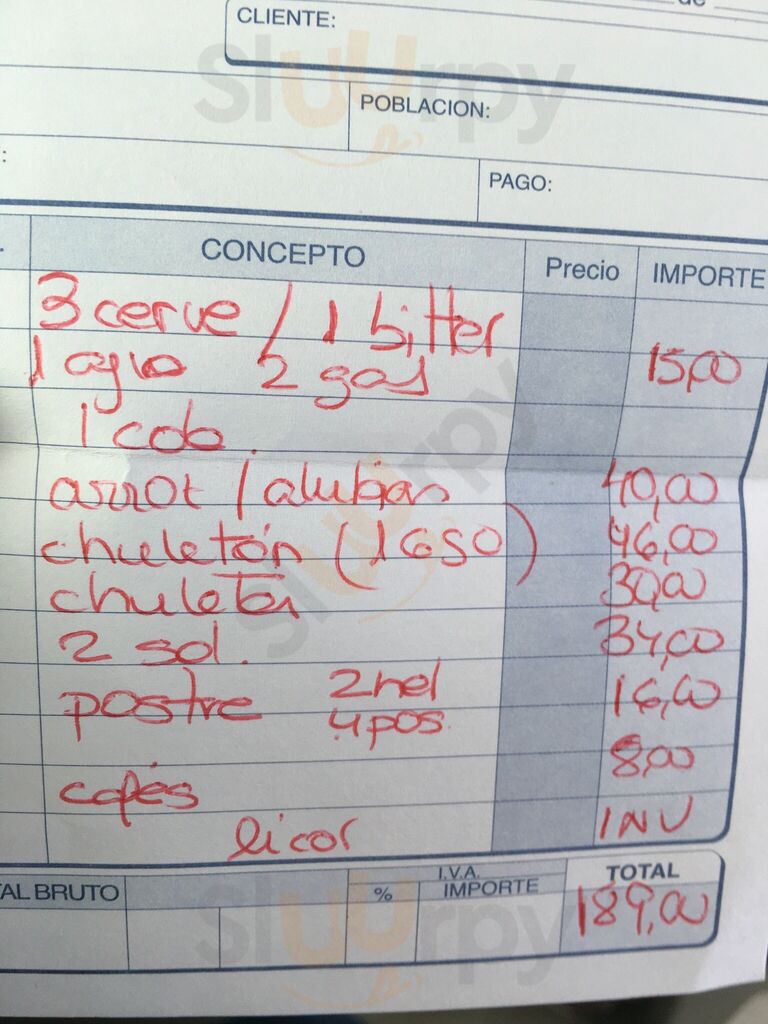 CLIENTE:
POBLACION:
PAGO:
CONCEPTO Precio IMPORTE
3 cerve / 1 bitter
1 agua 2 gas 15,00
1 cola
arroz / alubias 40,00
chuletón (1650) 46,00
chuleta 30,00
2 sol. 34,00
postre 2 hel 16,00
4 pos.
cafés 8,00
licor INV
AL BRUTO % I.V.A. IMPORTE TOTAL
189,00
Sluurpy
Sluurpy
Sluurpy